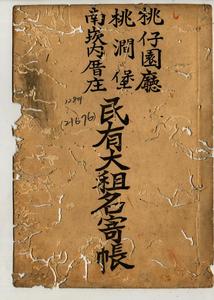 桃仔園廳
桃澗堡
南崁內厝庄
民有大租名寄帳
1284
(21676)